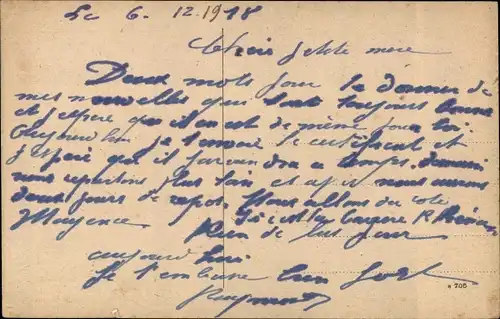 Le 6. 12. 1918
Chère petite mère
Deux mots pour te donner de
mes nouvelles qui sont toujours bonne
et j'espère que il en est de même pour toi.
Aujourd'hui je t'envoie le certificat et
j'espère que il parviendra a temps. demain
nous repartons plus loin et après nous aurons
deux jours de repos. Nous allons du coté
Mayence.
Rien de plus pour
aujourd hui
Je t'embrasse bien fort
Raymond
R 706